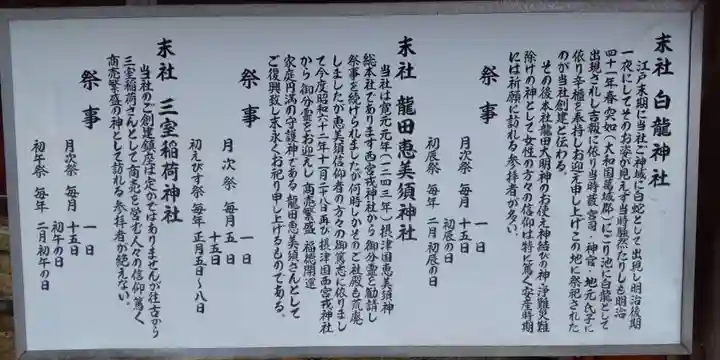 末社 白龍神社
江戸末期に当社ご神域に白蛇として出現し明治後期
一夜にしてそのお姿が見えず当時騒然たりしも明治
四十一年春 突如(大和国葛城郡)にごり池に白龍として
出現されし吉報に依り当時薮宮司・神官・地元氏子に
依り辛櫃を奉持しお迎え申し上げこの地に祭祀された
のが当社創建と伝わる。
その後本社龍田大明神のお使え神結びの神・浄難災難
除けの神として女性の方々の信仰は特に篤く安産時期
には祈願に訪れる参拝者が多い。
祭事
月次祭 毎月 一日
十五日
初辰の日
初辰祭 毎年 二月初辰の日
末社 龍田恵美須神社
当社は寛元元年(一二四三年)摂津国恵美須神
総本社であります西宮戎神社から御分霊を勧請し
祭事を続けられましたが何時しかそのご社殿も荒廃
しましたが恵美須信仰者の方々の御篤志に依りまし
て今度昭和六十二年十一月二十八日再び摂津国西宮戎神社
から御分霊をお迎えし商売繁盛 福徳開運
家庭円満の守護神である龍田恵美須さんとして
ご復興致しま永くお祀り申し上げるものである。
祭事
月次祭 毎月 一日
五日
十五日
初えびす祭 毎年 正月五日〜八日
末社 三室稲荷神社
当社のご創建鎮座は定かではありませんが往古から
三室稲荷さんとして商売を営む人々の信仰篤く
商売繁盛の神として訪れる参拝者が絶えない。
祭事
月次祭 毎月 一日
十五日
初午の日
初午祭 毎年 二月初午の日